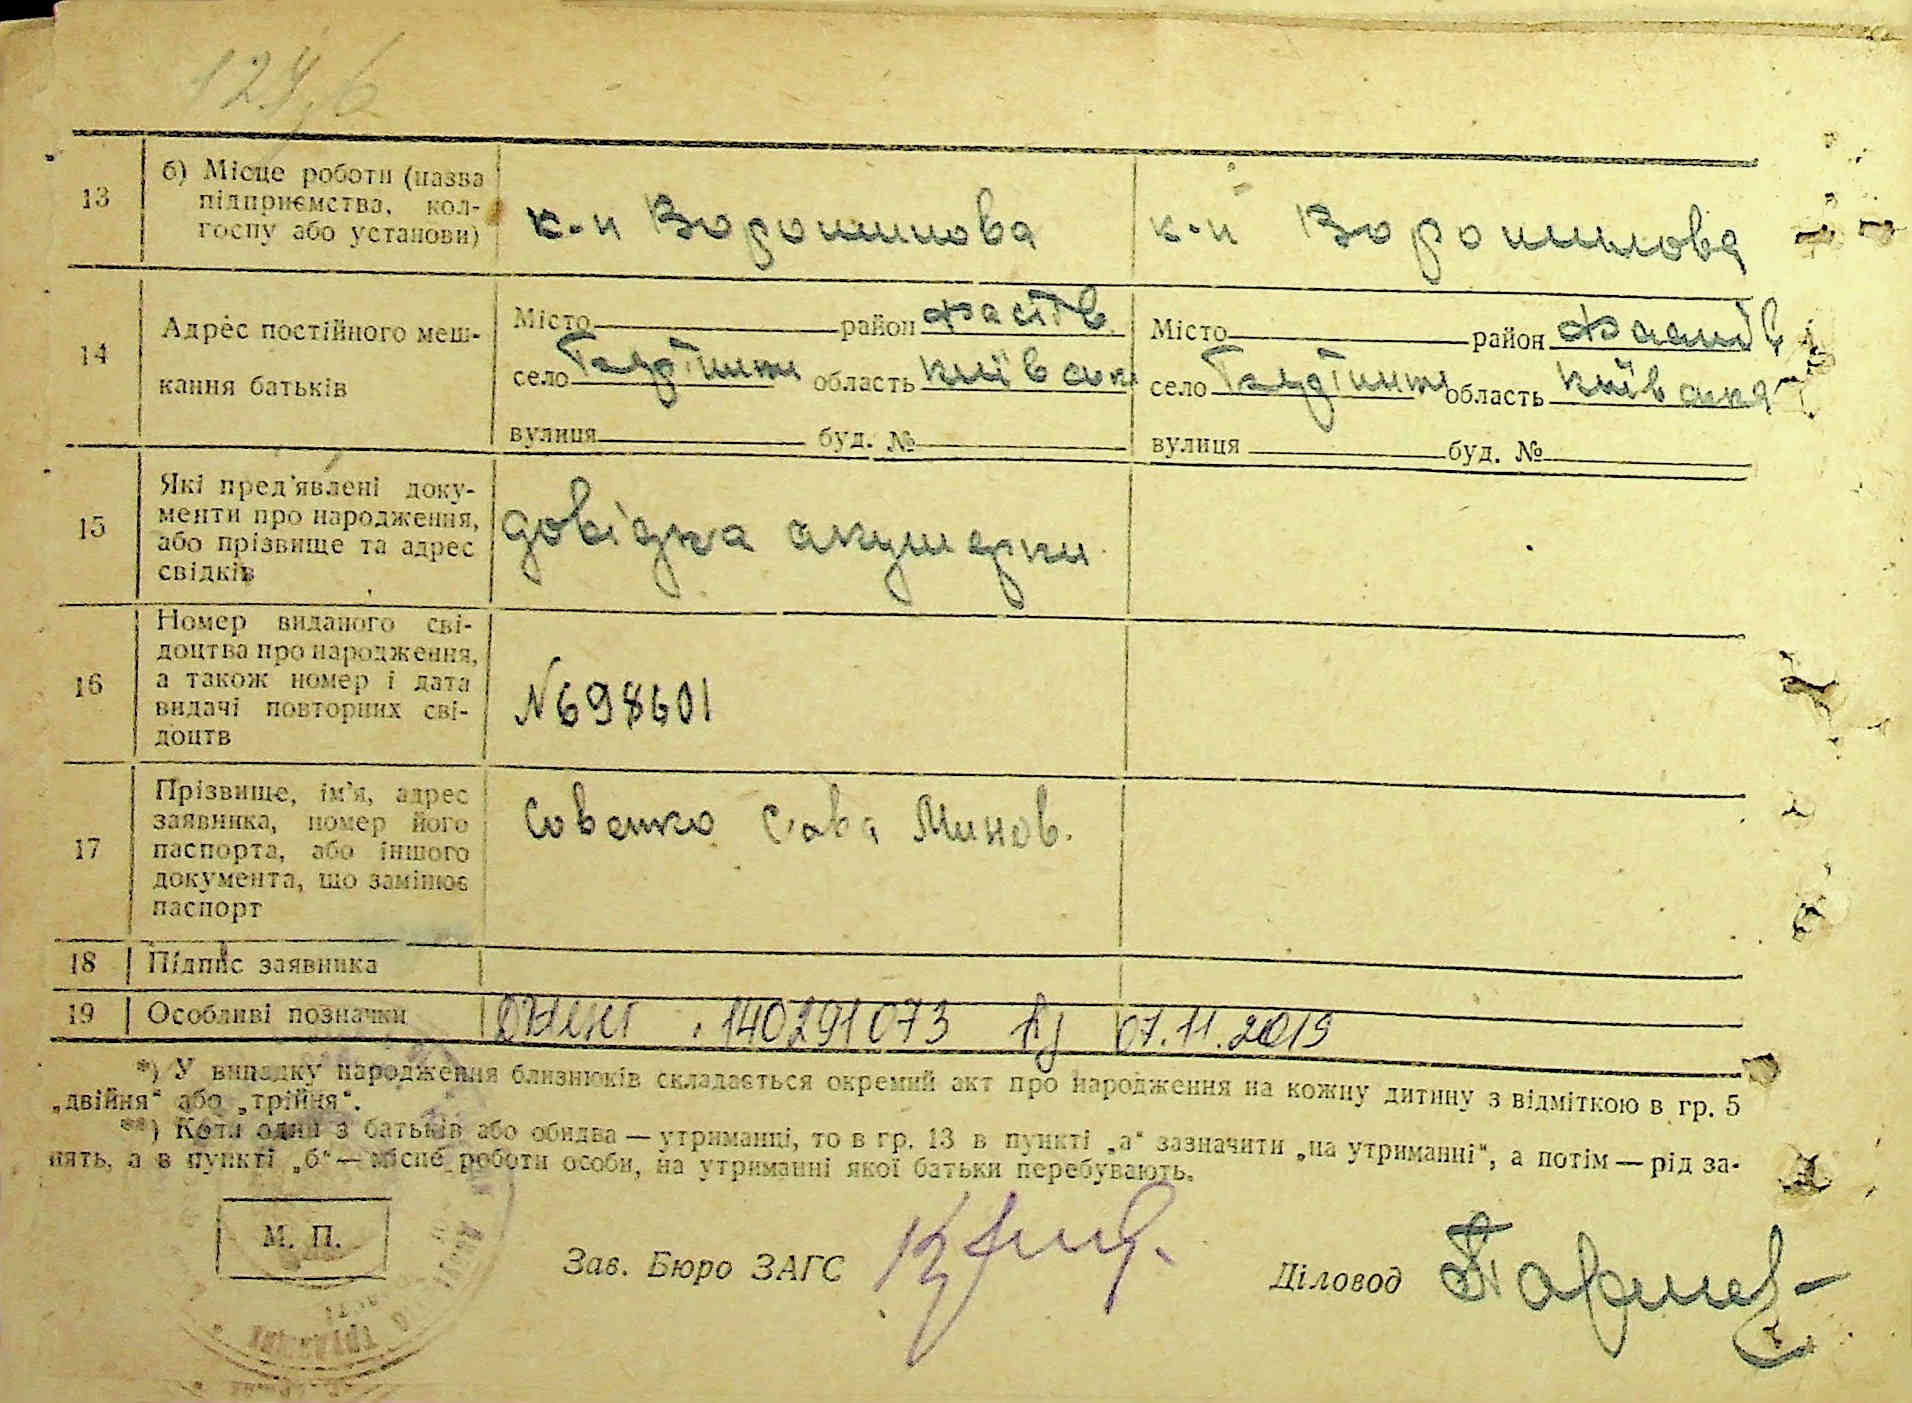 124,б
13
б) Місце роботи (назва
підприємства, кол-
госпу або установи)
к-п Ворошилова
к-п Ворошилова
14
Адрес постійного меш-
кання батьків
Місто район Фастів
село область Київська
вулиця буд. №
Місто район Фастів
село область Київська
вулиця буд. №
15
Які пред'явлені доку-
менти про народження,
або прізвище та адрес
свідків
довідка акушерки
16
Номер виданого сві-
доцтва про народження,
а також номер і дата
видачі повторних сві-
доцтв
№698601
17
Прізвище, ім'я, адрес
заявника, номер його
паспорта, або іншого
документа, що замінює
паспорт
Совенко Сава Минов.
18
Підпис заявника
19
Особливі позначки
140291073 07.11.2019
*) У випадку народження близнюків складається окремий акт про народження на кожну дитину з відміткою в гр. 5
„двійня" або „трійня".
**) Коли один з батьків або обидва — утриманці, то в гр. 13 в пункті „а" зазначити „на утриманні", а потім — рід за-
нять, а в пункті „б" — місце роботи особи, на утриманні якої батьки перебувають.
М. П.
Зав. Бюро ЗАГС
Діловод